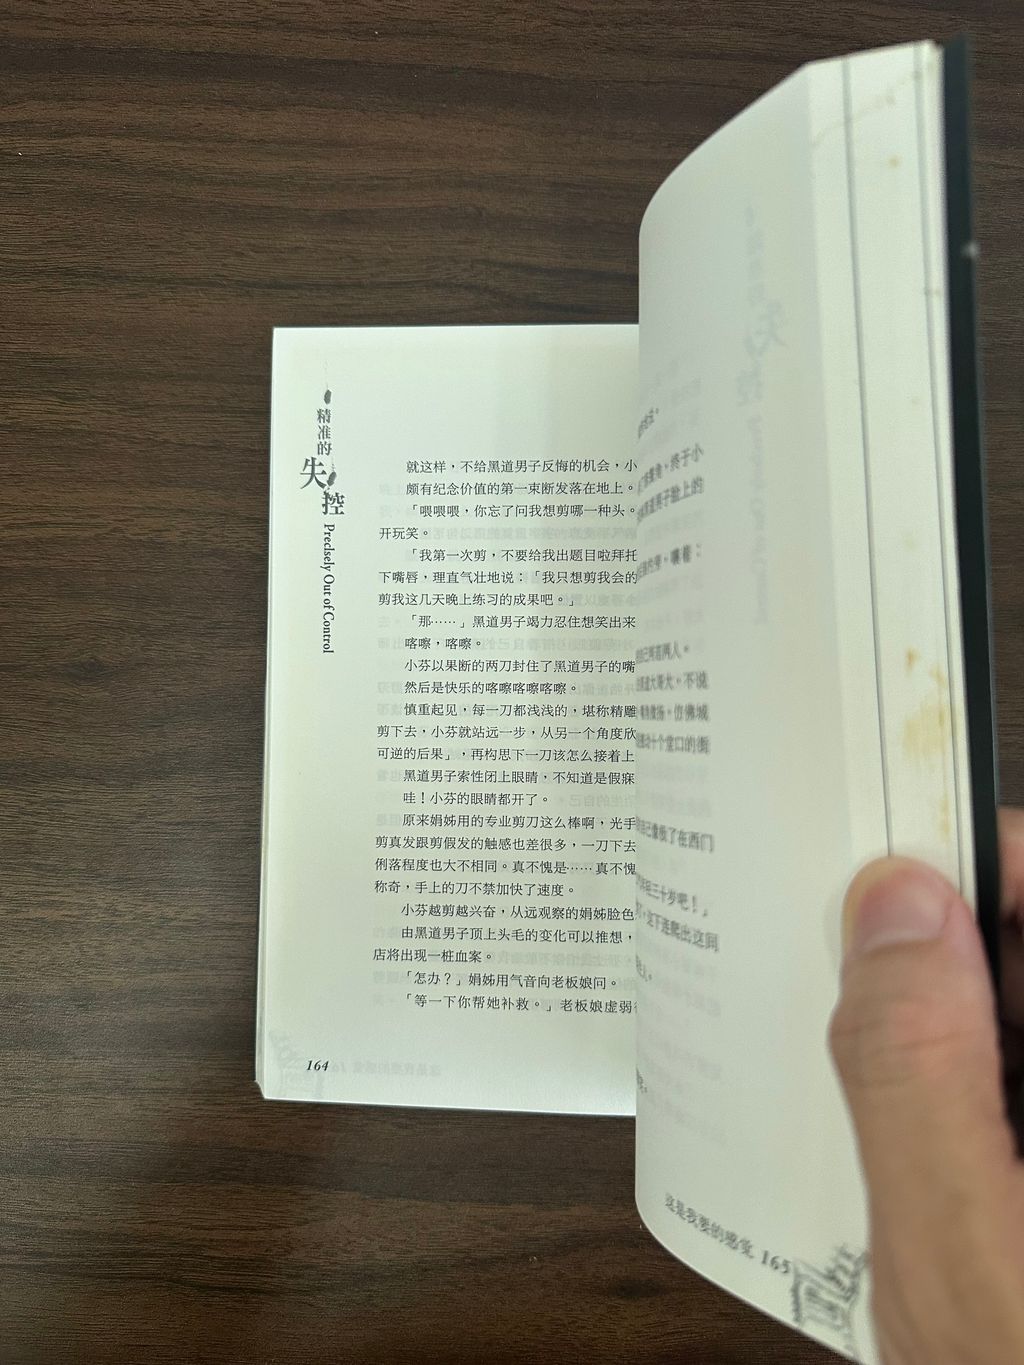 精准的
失控
Preclsely Out of Control
就这样，不给黑道男子反悔的机会，小
颇有纪念价值的第一束断发落在地上。
「喂喂喂，你忘了问我想剪哪一种头。
开玩笑。
「我第一次剪，不要给我出题目啦拜托
下嘴唇，理直气壮地说：「我只想剪我会的
剪我这几天晚上练习的成果吧。」
「那……」黑道男子竭力忍住想笑出来
喀嚓，喀嚓。
小芬以果断的两刀封住了黑道男子的嘴
然后是快乐的喀嚓喀嚓喀嚓。
慎重起见，每一刀都浅浅的，堪称精雕
剪下去，小芬就站远一步，从另一个角度欣
可逆的后果」，再构思下一刀该怎么接着上
黑道男子索性闭上眼睛，不知道是假寐
哇！小芬的眼睛都开了。
原来娟姊用的专业剪刀这么棒啊，光手
剪真发跟剪假发的触感也差很多，一刀下去
俐落程度也大不相同。真不愧是……真不愧
称奇，手上的刀不禁加快了速度。
小芬越剪越兴奋，从远观察的娟姊脸色
由黑道男子顶上头毛的变化可以推想，
店将出现一桩血案。
「怎办？」娟姊用气音向老板娘问。
「等一下你帮她补救。」老板娘虚弱
164
终于小
黑道男子脸上的
嚷着：
己两百两人。
道大哥大。不说
仿佛城
十个堂口的街
自己像极了在西门
三十岁吧！」
这下连爬出这间
这是我要的感觉 165